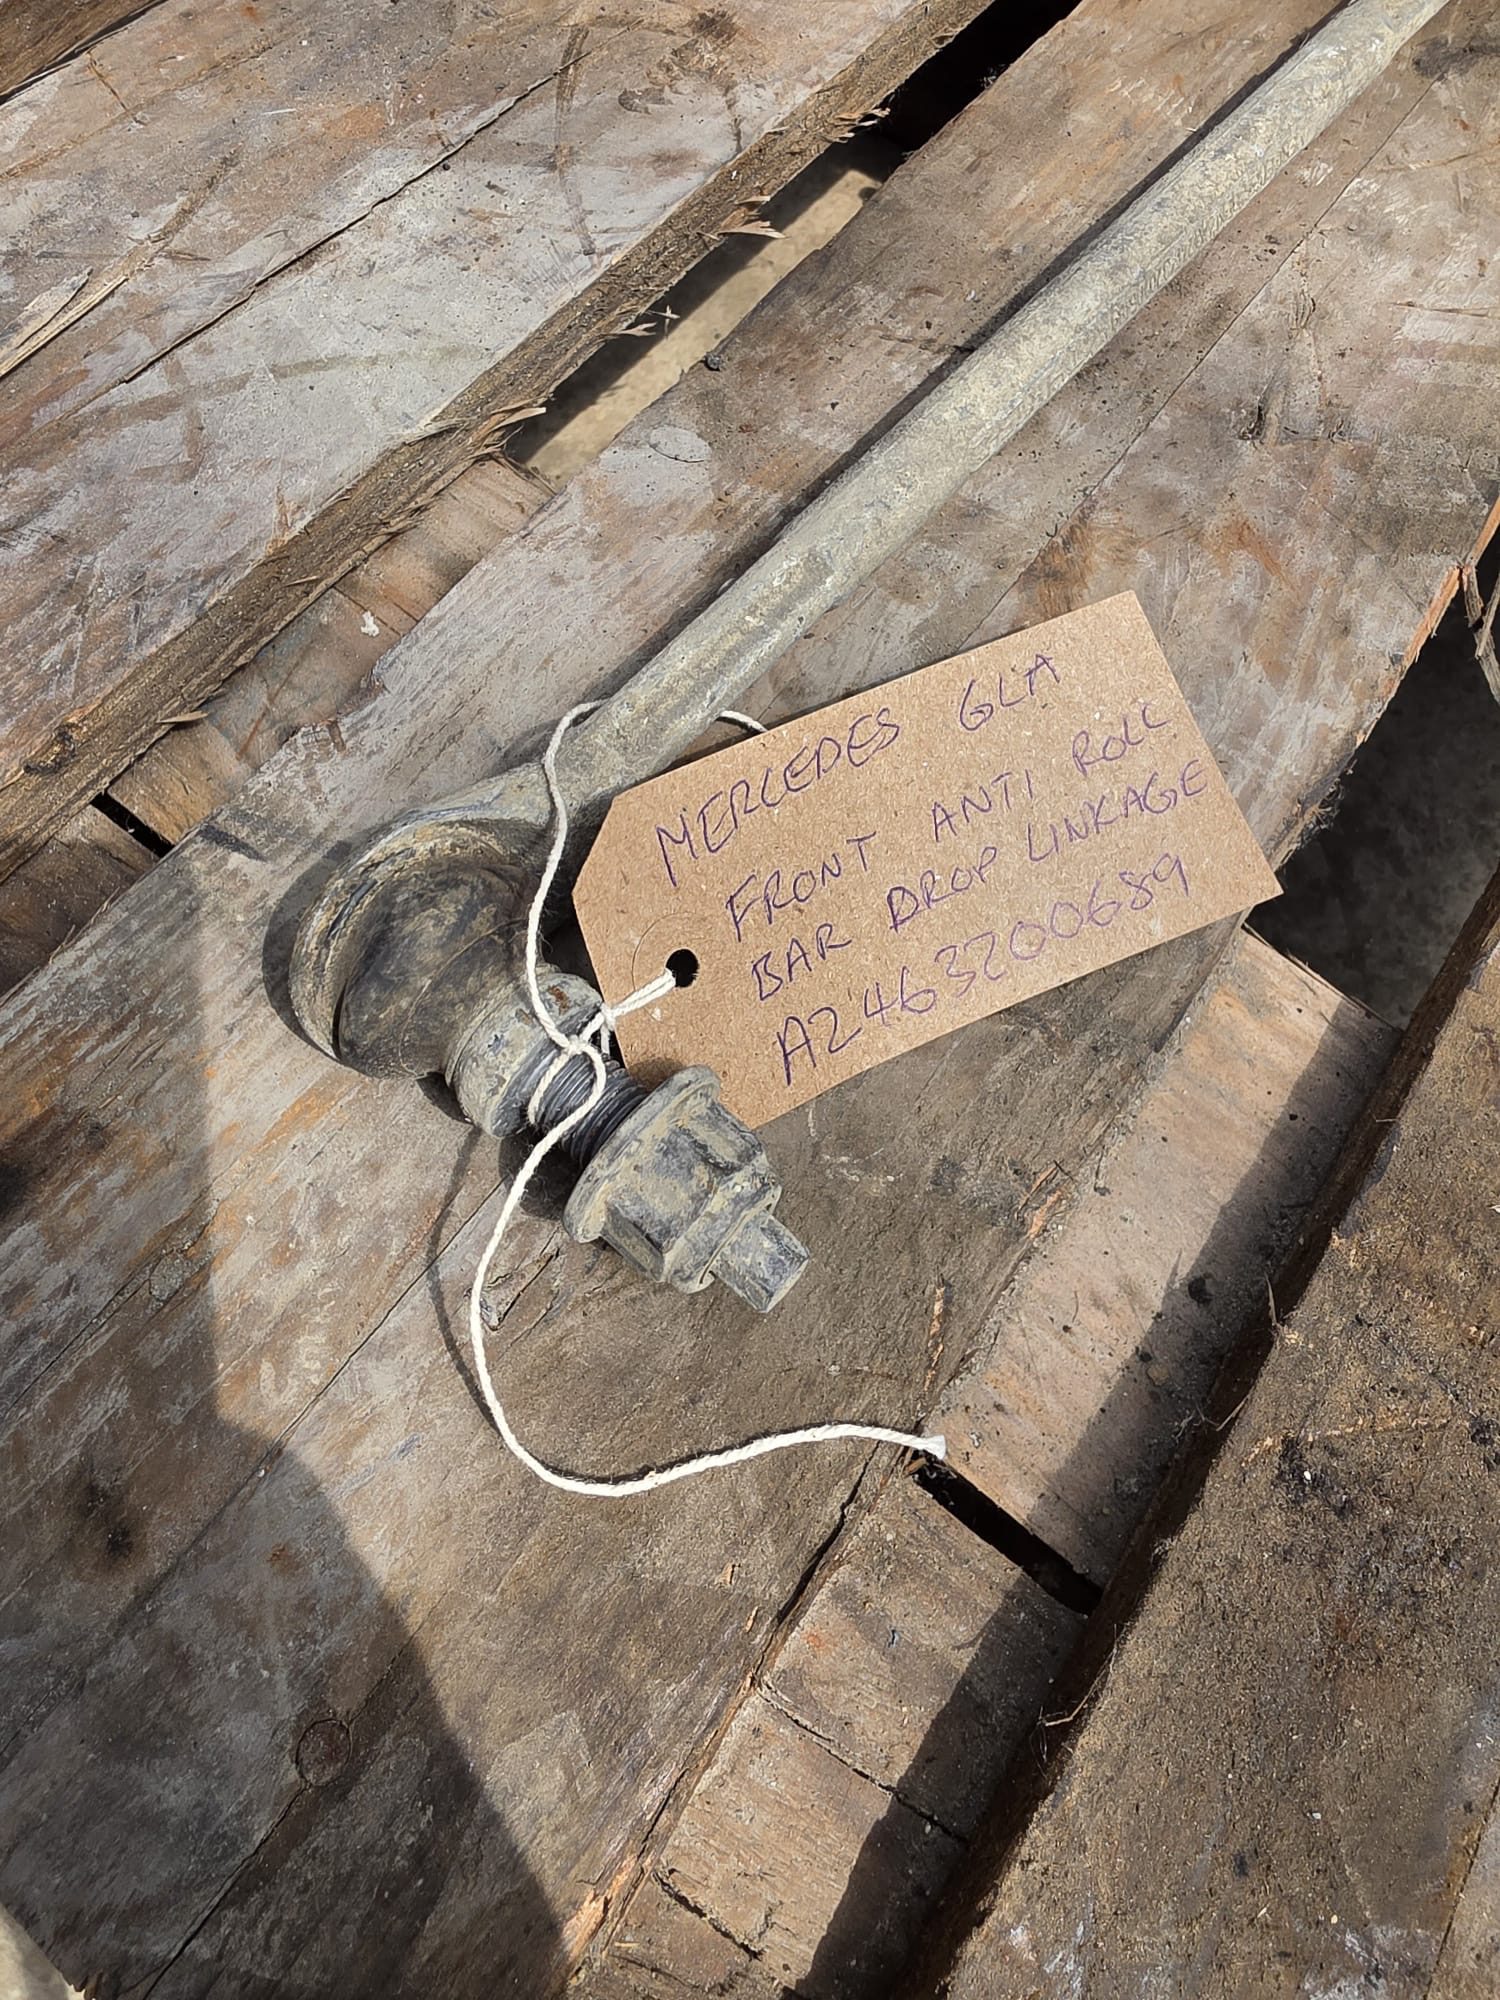 MERCEDES GLA
FRONT ANTI ROLL
BAR DROP LINKAGE
A2463200689